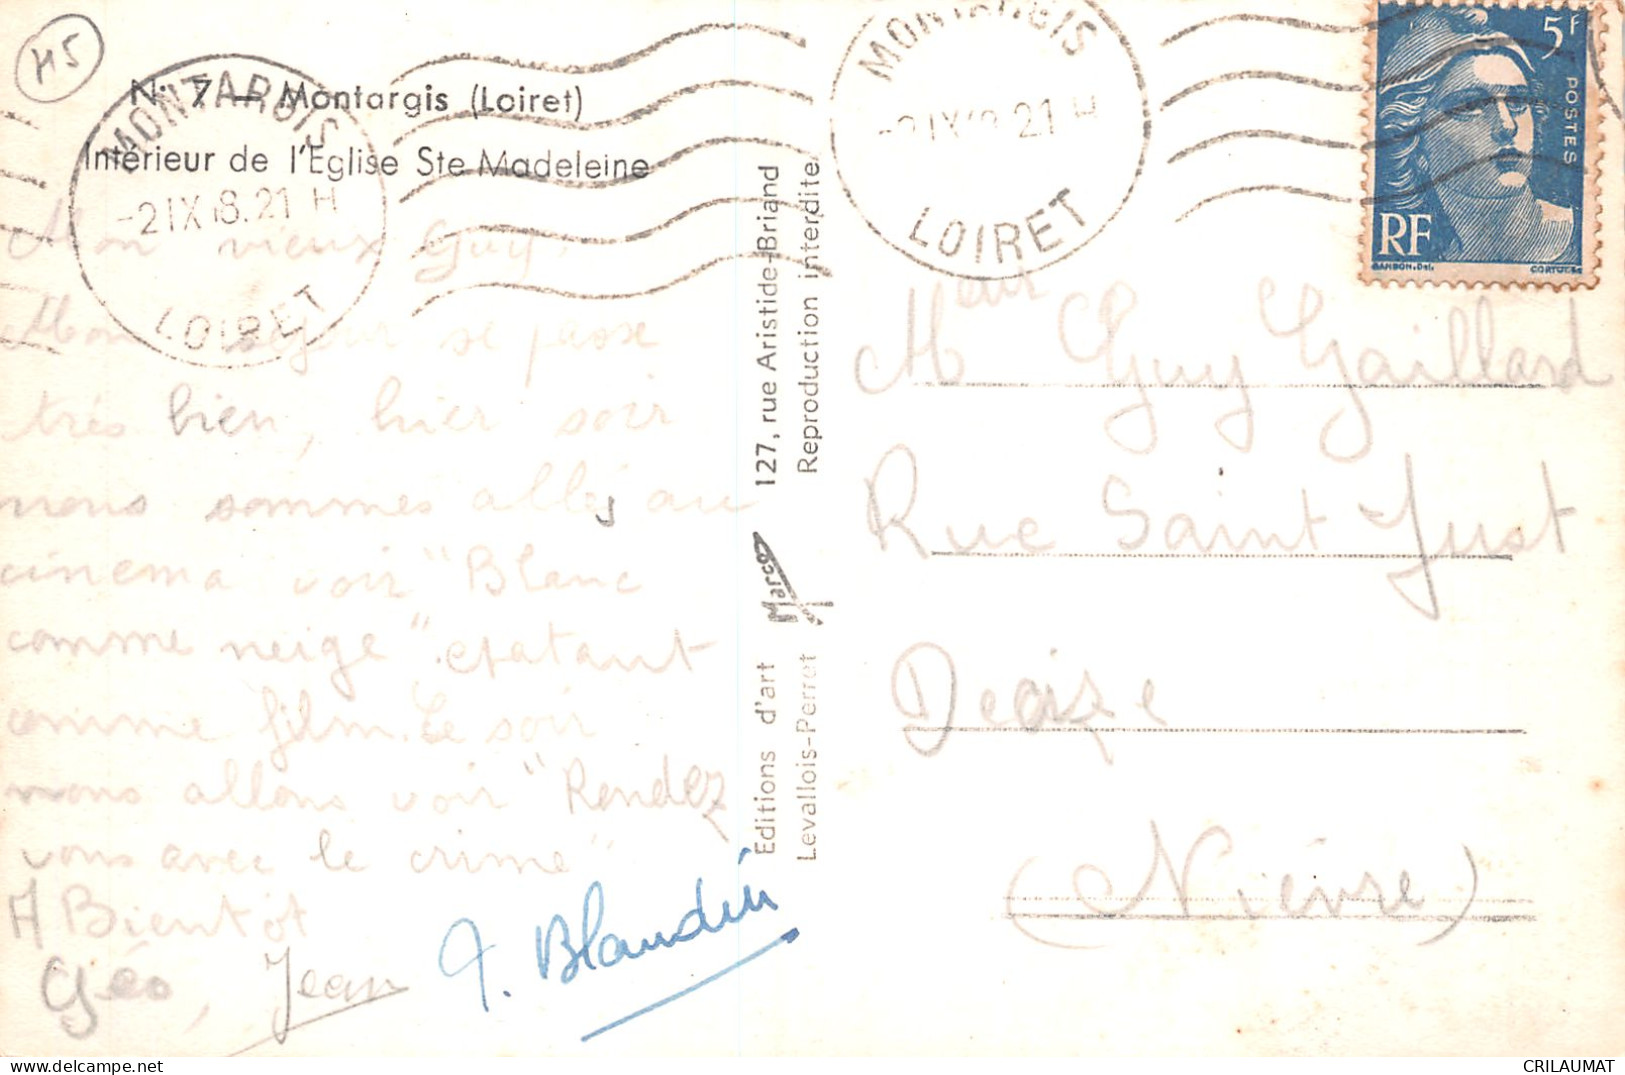 M5
N: 7 — Montargis (Loiret)
Intérieur de l'Eglise Ste Madeleine
MONTARGIS
-2 IX 48. 21 H
LOIRET
Mon vieux Guy,
Mon séjour se passe
très bien, hier soir
nous sommes allés au
cinema voir "Blanc
comme neige" epatant
comme film. Ce soir
nous allons voir "Rendez
vous avec le crime"
A Bientôt
Géo, Jean
Blandin
Editions d'art Marco 127, rue Aristide-Briand
Levallois-Perret Reproduction interdite
MONTARGIS
-2 IX 48 21 H
LOIRET
5f
POSTES
RF
GANDON.Del.
CORTOT.Sc
Meur Guy Gaillard
Rue Saint Just
Decize
(Nièvre)
CRILAUMAT